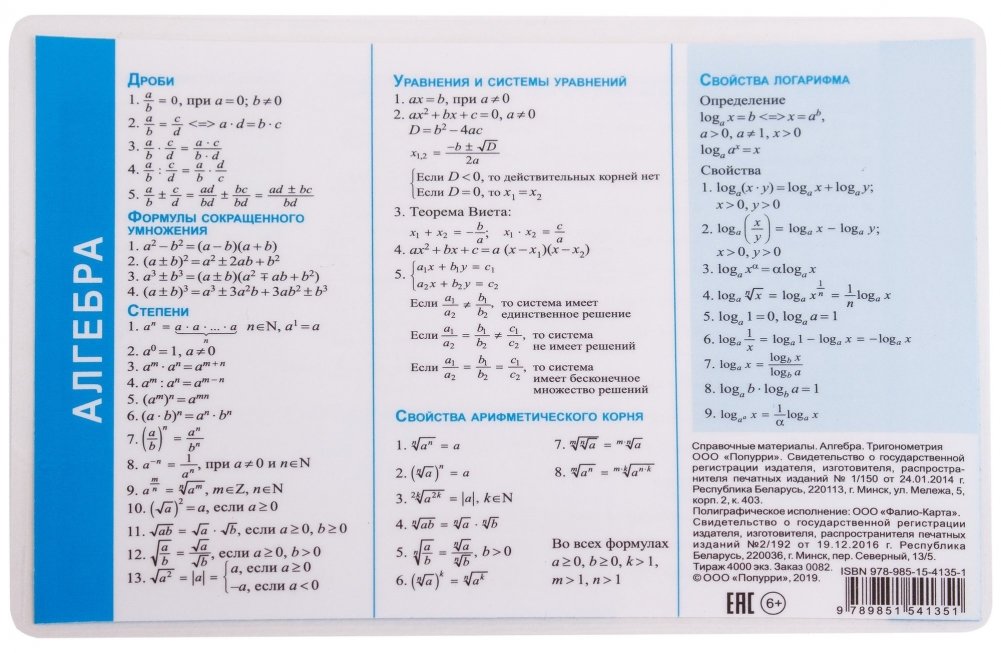 АЛГЕБРА
Дроби
1. a/b = 0, при a = 0; b ≠ 0
2. a/b = c/d <=> a · d = b · c
3. a/b · c/d = (a · c)/(b · d)
4. a/b : c/d = a/b · d/c
5. a/b ± c/d = ad/bd ± bc/bd = (ad ± bc)/bd
Формулы сокращенного
умножения
1. a² – b² = (a – b)(a + b)
2. (a ± b)² = a² ± 2ab + b²
3. a³ ± b³ = (a ± b)(a² ∓ ab + b²)
4. (a ± b)³ = a³ ± 3a²b + 3ab² ± b³
Степени
1. aⁿ = a · a · ... · a n∈N, a¹ = a
n
2. a⁰ = 1, a ≠ 0
3. aᵐ · aⁿ = aᵐ⁺ⁿ
4. aᵐ : aⁿ = aᵐ⁻ⁿ
5. (aᵐ)ⁿ = aᵐⁿ
6. (a · b)ⁿ = aⁿ · bⁿ
7. (a/b)ⁿ = aⁿ/bⁿ
8. a⁻ⁿ = 1/aⁿ, при a ≠ 0 и n∈N
9. a^(m/n) = ⁿ√aᵐ, m∈Z, n∈N
10. (√a)² = a, если a ≥ 0
11. √ab = √a · √b, если a ≥ 0, b ≥ 0
12. √(a/b) = √a/√b, если a ≥ 0, b > 0
13. √a² = |a| = { a, если a ≥ 0
–a, если a < 0
Уравнения и системы уравнений
1. ax = b, при a ≠ 0
2. ax² + bx + c = 0, a ≠ 0
D = b² – 4ac
x₁,₂ = (–b ± √D)/2a
{ Если D < 0, то действительных корней нет
Если D = 0, то x₁ = x₂
3. Теорема Виета:
x₁ + x₂ = –b/a; x₁ · x₂ = c/a
4. ax² + bx + c = a (x – x₁)(x – x₂)
5. { a₁x + b₁y = c₁
a₂x + b₂y = c₂
Если a₁/a₂ ≠ b₁/b₂, то система имеет
единственное решение
Если a₁/a₂ = b₁/b₂ ≠ c₁/c₂, то система
не имеет решений
Если a₁/a₂ = b₁/b₂ = c₁/c₂, то система
имеет бесконечное
множество решений
Свойства арифметического корня
1. ⁿ√aⁿ = a
2. (ⁿ√a)ⁿ = a
3. ²ᵏ√a²ᵏ = |a|, k∈N
4. ⁿ√ab = ⁿ√a · ⁿ√b
5. ⁿ√(a/b) = ⁿ√a/ⁿ√b, b > 0
6. (ⁿ√a)ᵏ = ⁿ√aᵏ
7. ᵐ√ⁿ√a = ᵐ·ⁿ√a
8. ᵐ√aⁿ = ᵐ·ᵏ√aⁿ·ᵏ
Во всех формулах
a ≥ 0, b ≥ 0, k > 1,
m > 1, n > 1
Свойства логарифма
Определение
logₐ x = b <=> x = aᵇ,
a > 0, a ≠ 1, x > 0
logₐ aˣ = x
Свойства
1. logₐ(x · y) = logₐ x + logₐ y;
x > 0, y > 0
2. logₐ(x/y) = logₐ x – logₐ y;
x > 0, y > 0
3. logₐ x^α = αlogₐ x
4. logₐ ⁿ√x = logₐ x^(1/n) = 1/n logₐ x
5. logₐ 1 = 0, logₐ a = 1
6. logₐ 1/x = logₐ 1 – logₐ x = –logₐ x
7. logₐ x = log_b x/log_b a
8. logₐ b · log_b a = 1
9. log_(a^α) x = 1/α logₐ x
Справочные материалы. Алгебра. Тригонометрия
ООО «Попурри». Свидетельство о государственной
регистрации издателя, изготовителя, распростра-
нителя печатных изданий № 1/150 от 24.01.2014 г.
Республика Беларусь, 220113, г. Минск, ул. Мележа, 5,
корп. 2, к. 403.
Полиграфическое исполнение: ООО «Фалио-Карта».
Свидетельство о государственной регистрации
издателя, изготовителя, распространителя печатных
изданий №2/192 от 19.12.2016 г. Республика
Беларусь, 220036, г. Минск, пер. Северный, 13/5.
Тираж 4000 экз. Заказ 0082.
© ООО «Попурри», 2019.
ISBN 978-985-15-4135-1
EAC 6+
9 789851 541351